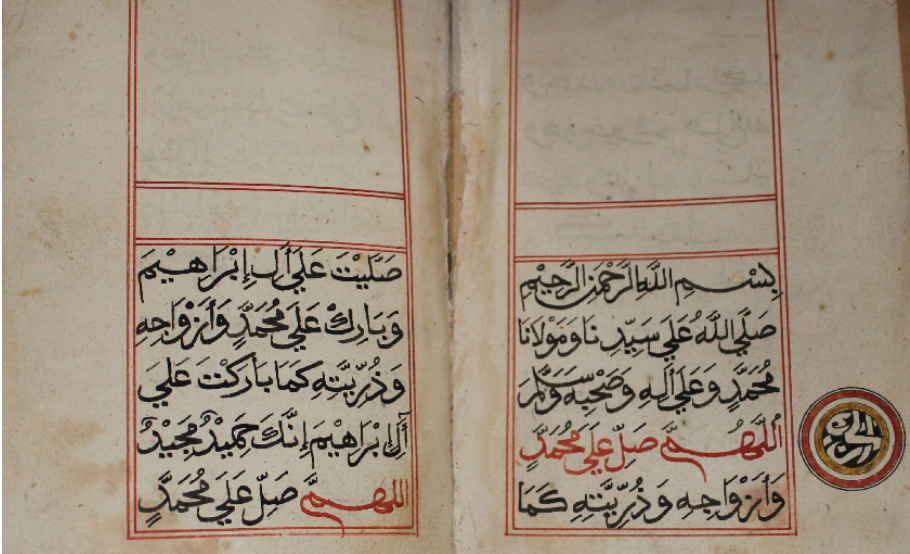 بِسْمِ اللَّهِ الرَّحْمَنِ الرَّحِيْمِ
صَلَّي اللَّهُ عَلَي سَيِّدِنَا وَمَوْلَانَا
مُحَمَّدٍ وَعَلَي أَلِهِ وَصَحْبِهِ وَسَلَّمَ
أَللَّهُمَّ صَلِّ عَلَي مُحَمَّدٍ
وَأَزْوَاجِهِ وَذُرِّيَّتِهِ كَمَا
صَلَّيْتَ عَلَي أَلِ إِبْرَاهِيْمَ
وَبَارِكْ عَلَي مُحَمَّدٍ وَأَزْوَاجِهِ
وَذُرِّيَّتِهِ كَمَا بَارَكْتَ عَلَي
أَلِ إِبْرَاهِيْمَ إِنَّكَ حَمِيْدٌ مَجِيْدٌ
اللهُمَّ صَلِّ عَلَي مُحَمَّدٍ